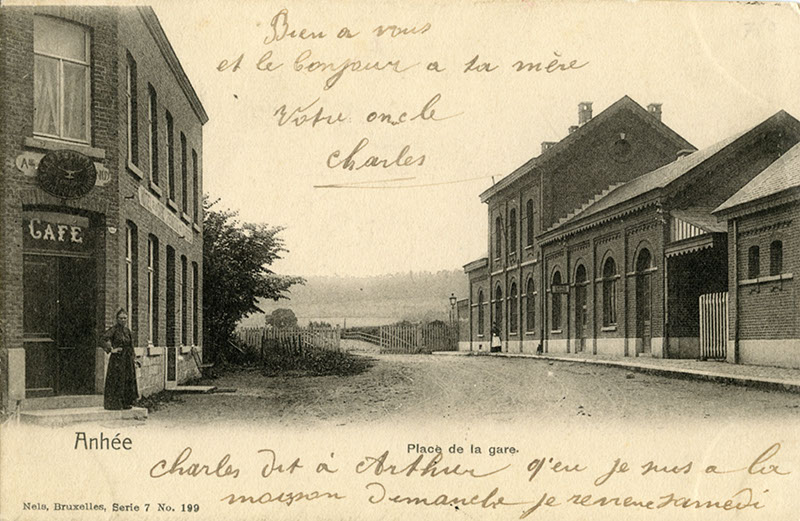 Bien a vous
et le bonjour a ta mère
Votre oncle
Charles
CAFE
Anhée
Place de la gare.
Charles dit à Arthur q'en je sus a la
moisson Dimanche je reviens samedi
Nels, Bruxelles, Serie 7 No. 199